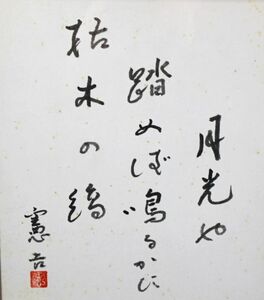 月光や
踏めば鳴るかに
枯木の縞
憲吉